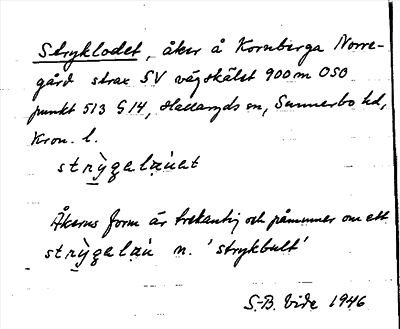 Stryklodet, åker å Kornberga Norre-
gård strax SV vägskälet 900 m OSO
punkt 513 G 14, Hallaryds sn, Sunnerbo hd,
Kron. l.
strỳgelaùet
Åkerns form är trekantig och påminner om ett
strỳgelaù n. 'strykbult'
S.-B. Vide 1946